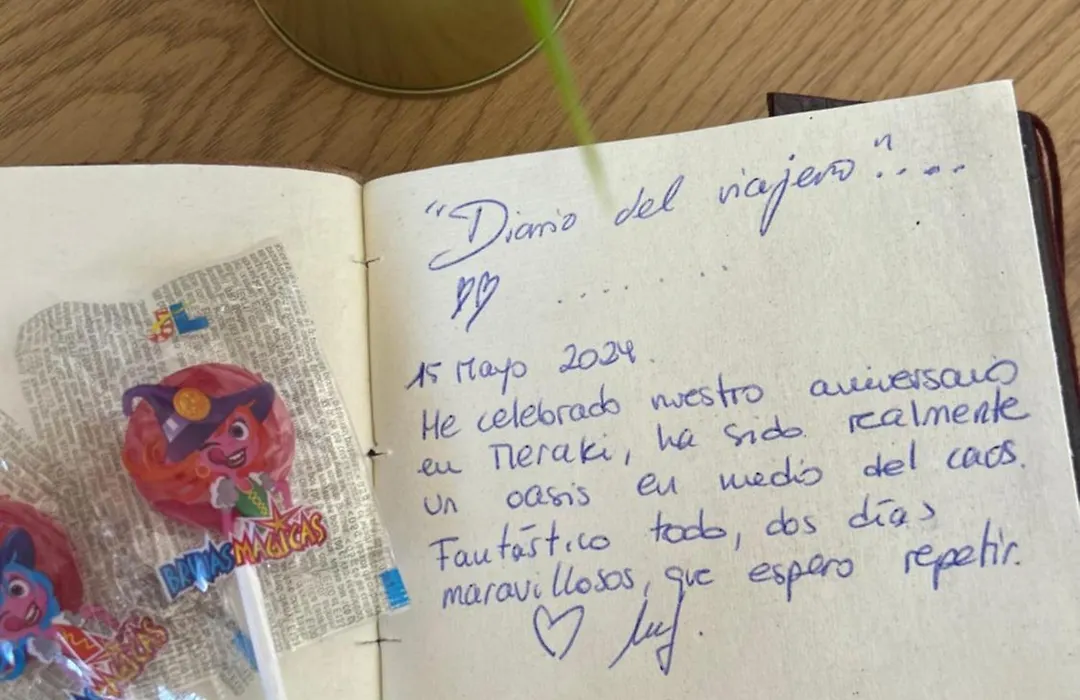 "Diario del viajero"....
15 Mayo 2024.
He celebrado nuestro aniversario
en Meraki, ha sido realmente
un oasis en medio del caos.
Fantástico todo, dos días
maravillosos, que espero repetir.
BRUJAS MAGICAS
MAGICAS